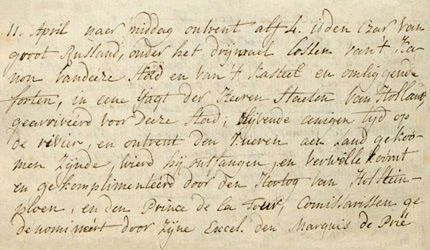 11. April naer middag ontrent alf 4. is den Czar van
groot Rusland, onder het drijmael lossen van't Ca-
non van deze Stad en van 't Kasteel en omliggende
forten, in eene Jagt der Heeren Staeten van Holland
gearriveerd voor deze Stad; blijvende eenigen tijd op
de rivier, en ontrent den Kueren aen Land gekoo-
men zijnde, wierd hij ontfangen, en verwellekoomt
en gekomplimenteerd door den Hertog van Holstein-
ploen, en den Prince de la Tour, Comissarissen ge
denomineert door zijne Excel. den Marquis de Prié